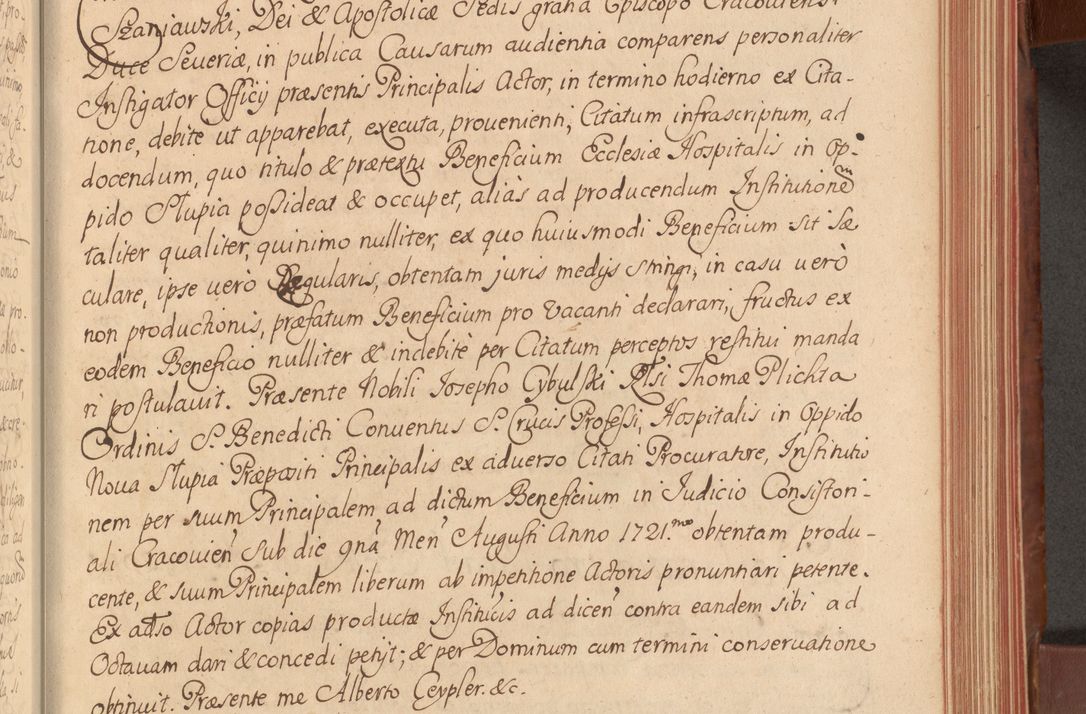 Szaniawski, Dei & Apostolicæ Sedis gratia Episcopo Cracoviensi
Duce Severiæ, in publica Causarum audientia comparens personaliter
Instigator Officij præsentis Principalis Actor, in termino hodierno ex Cita-
tione, debite ut apparebat, executa, provenienti, Citatum infrascriptum, ad
docendum, quo titulo & prætextu Beneficium Ecclesiæ Hospitalis in Op-
pido Slupia possideat & occupet, alias ad producendum Institutionem
taliter qualiter, quinimo nulliter, ex quo huiusmodi Beneficium sit Sæ
culare, ipse verò Regularis, obtentam juris medijs stringi, in casu verò
non productionis, præfatum Beneficium pro vacanti declarari, fructus ex
eodem Beneficio nulliter & indebitè per Citatum perceptos restitui manda
ri postulavit. Præsente Nobili Josepho Cybulski Rlsi Thomæ Plichta
Ordinis S. Benedicti Conventus S. Crucis Professi, Hospitalis in Oppido
Nova Slupia Præpositi Principalis ex adverso Citati Procuratore, Institutio
nem per suum Principalem ad dictum Beneficium in Judicio Consistori-
ali Cracovien Sub die 9na Men Augusti Anno 1721.mo obtentam produ-
cente, & suum Principalem liberum ab impetitione Actoris pronuntiari petente.
Ex adso Actor copias productæ Institucis ad dicen contra eandem sibi ad
Octavam dari & concedi petijt; & per Dominum cum termini conservatione
obtinuit. Præsente me Alberto Ceypler. &c.